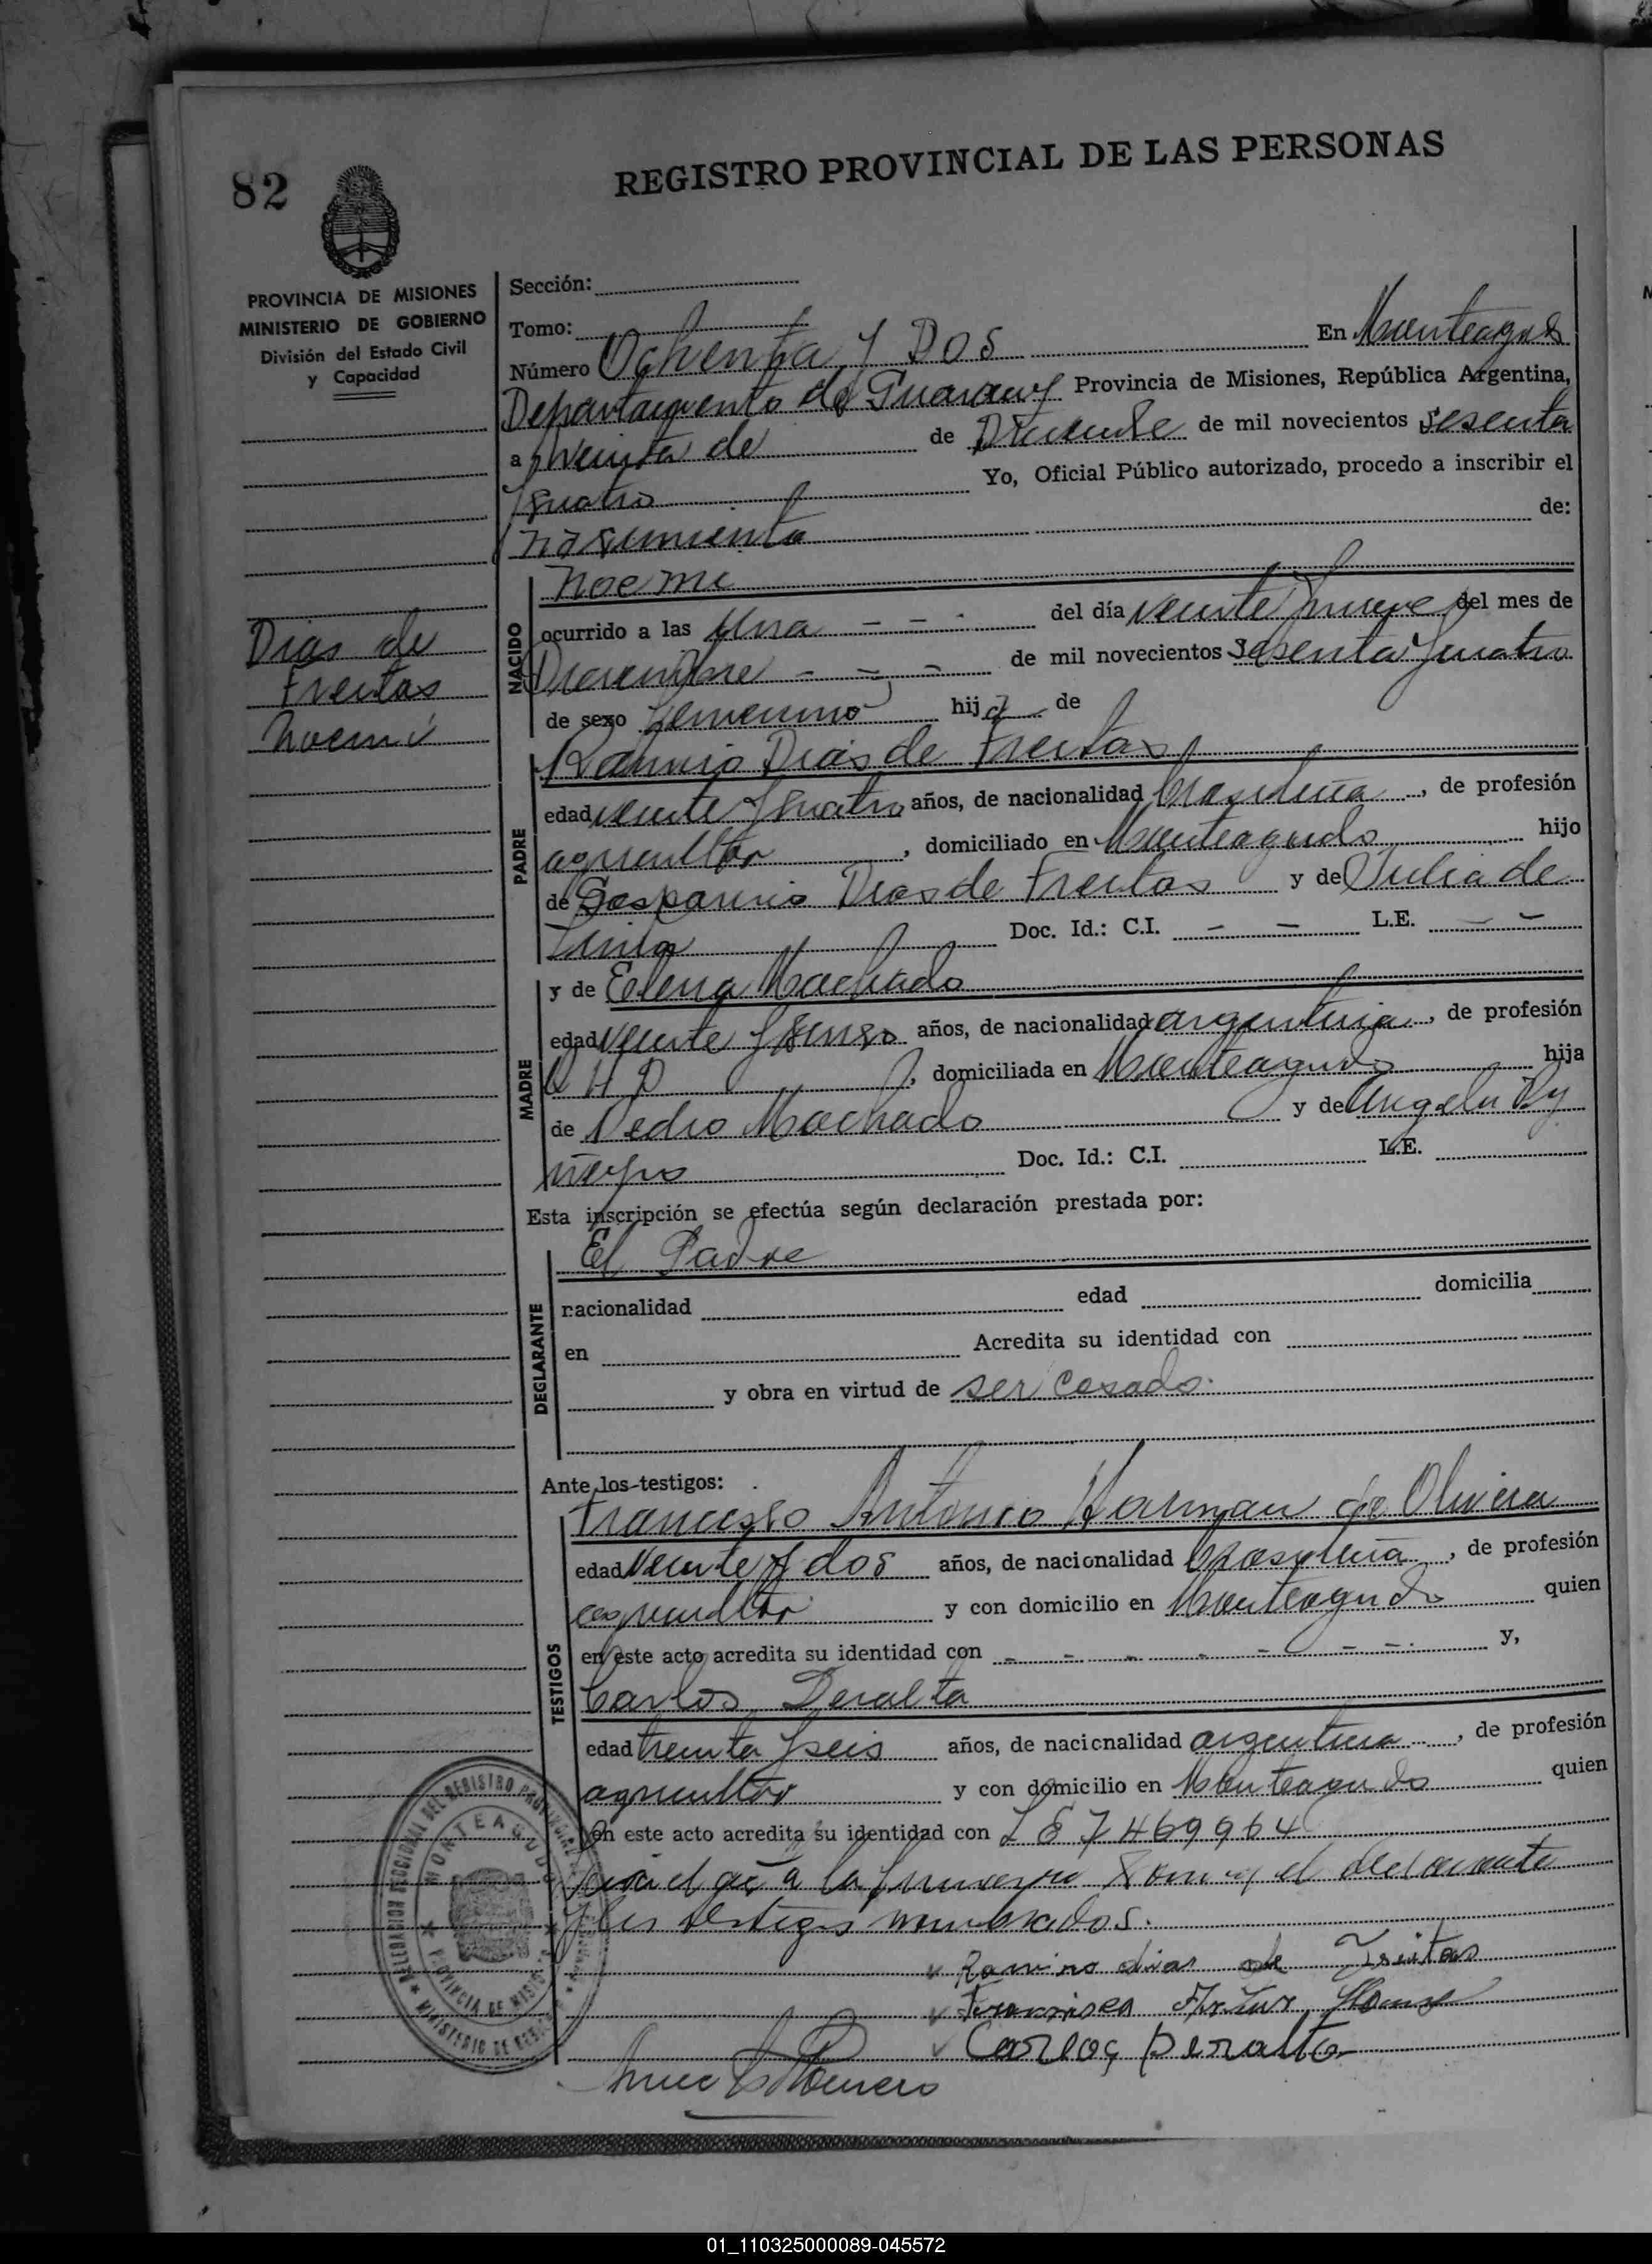 82
REGISTRO PROVINCIAL DE LAS PERSONAS
PROVINCIA DE MISIONES
MINISTERIO DE GOBIERNO
División del Estado Civil
y Capacidad
Dias de
Freitas
Noemí
Sección:
Tomo:
Número Ochenta y Dos En Monteagudo
Departamento de Guarany Provincia de Misiones, República Argentina,
a treinta de de Diciembre de mil novecientos sesenta
y cuatro Yo, Oficial Público autorizado, procedo a inscribir el
nacimiento de:
NACIDO
Noemi
ocurrido a las Una - - - del día veinte y nueve del mes de
Diciembre - - - de mil novecientos sesenta y cuatro
de sexo femenino hija de
PADRE
Ramiro Dias de Freitas
edad veinte y cuatro años, de nacionalidad brasileña, de profesión
agricultor, domiciliado en Monteagudo hijo
de Gasparino Dias de Freitas y de Julia de
Doc. Id.: C.I. - - L.E. - -
MADRE
y de Elena Machado
edad veinte y años, de nacionalidad argentina, de profesión
Q H D, domiciliada en Monteagudo hija
de Pedro Machado y de Angela
Doc. Id.: C.I. L.E.
Esta inscripción se efectúa según declaración prestada por:
DECLARANTE
El Padre
nacionalidad edad domicilia
en Acredita su identidad con
y obra en virtud de ser casado.
Ante los testigos:
TESTIGOS
Francisco Antonio de Olivera
edad veinte y dos años, de nacionalidad brasileña, de profesión
agricultor y con domicilio en Monteagudo quien
en este acto acredita su identidad con - - - - - - - y,
Carlos Peralta
edad treinta y seis años, de nacionalidad argentina, de profesión
agricultor y con domicilio en Monteagudo quien
en este acto acredita su identidad con L E 7469964
el declarante
y los testigos nombrados.
Ramiro dias de Freitas
Carlos peralta
MONTEAGUDO
PROVINCIA DE MISIONES
01_110325000089-045572